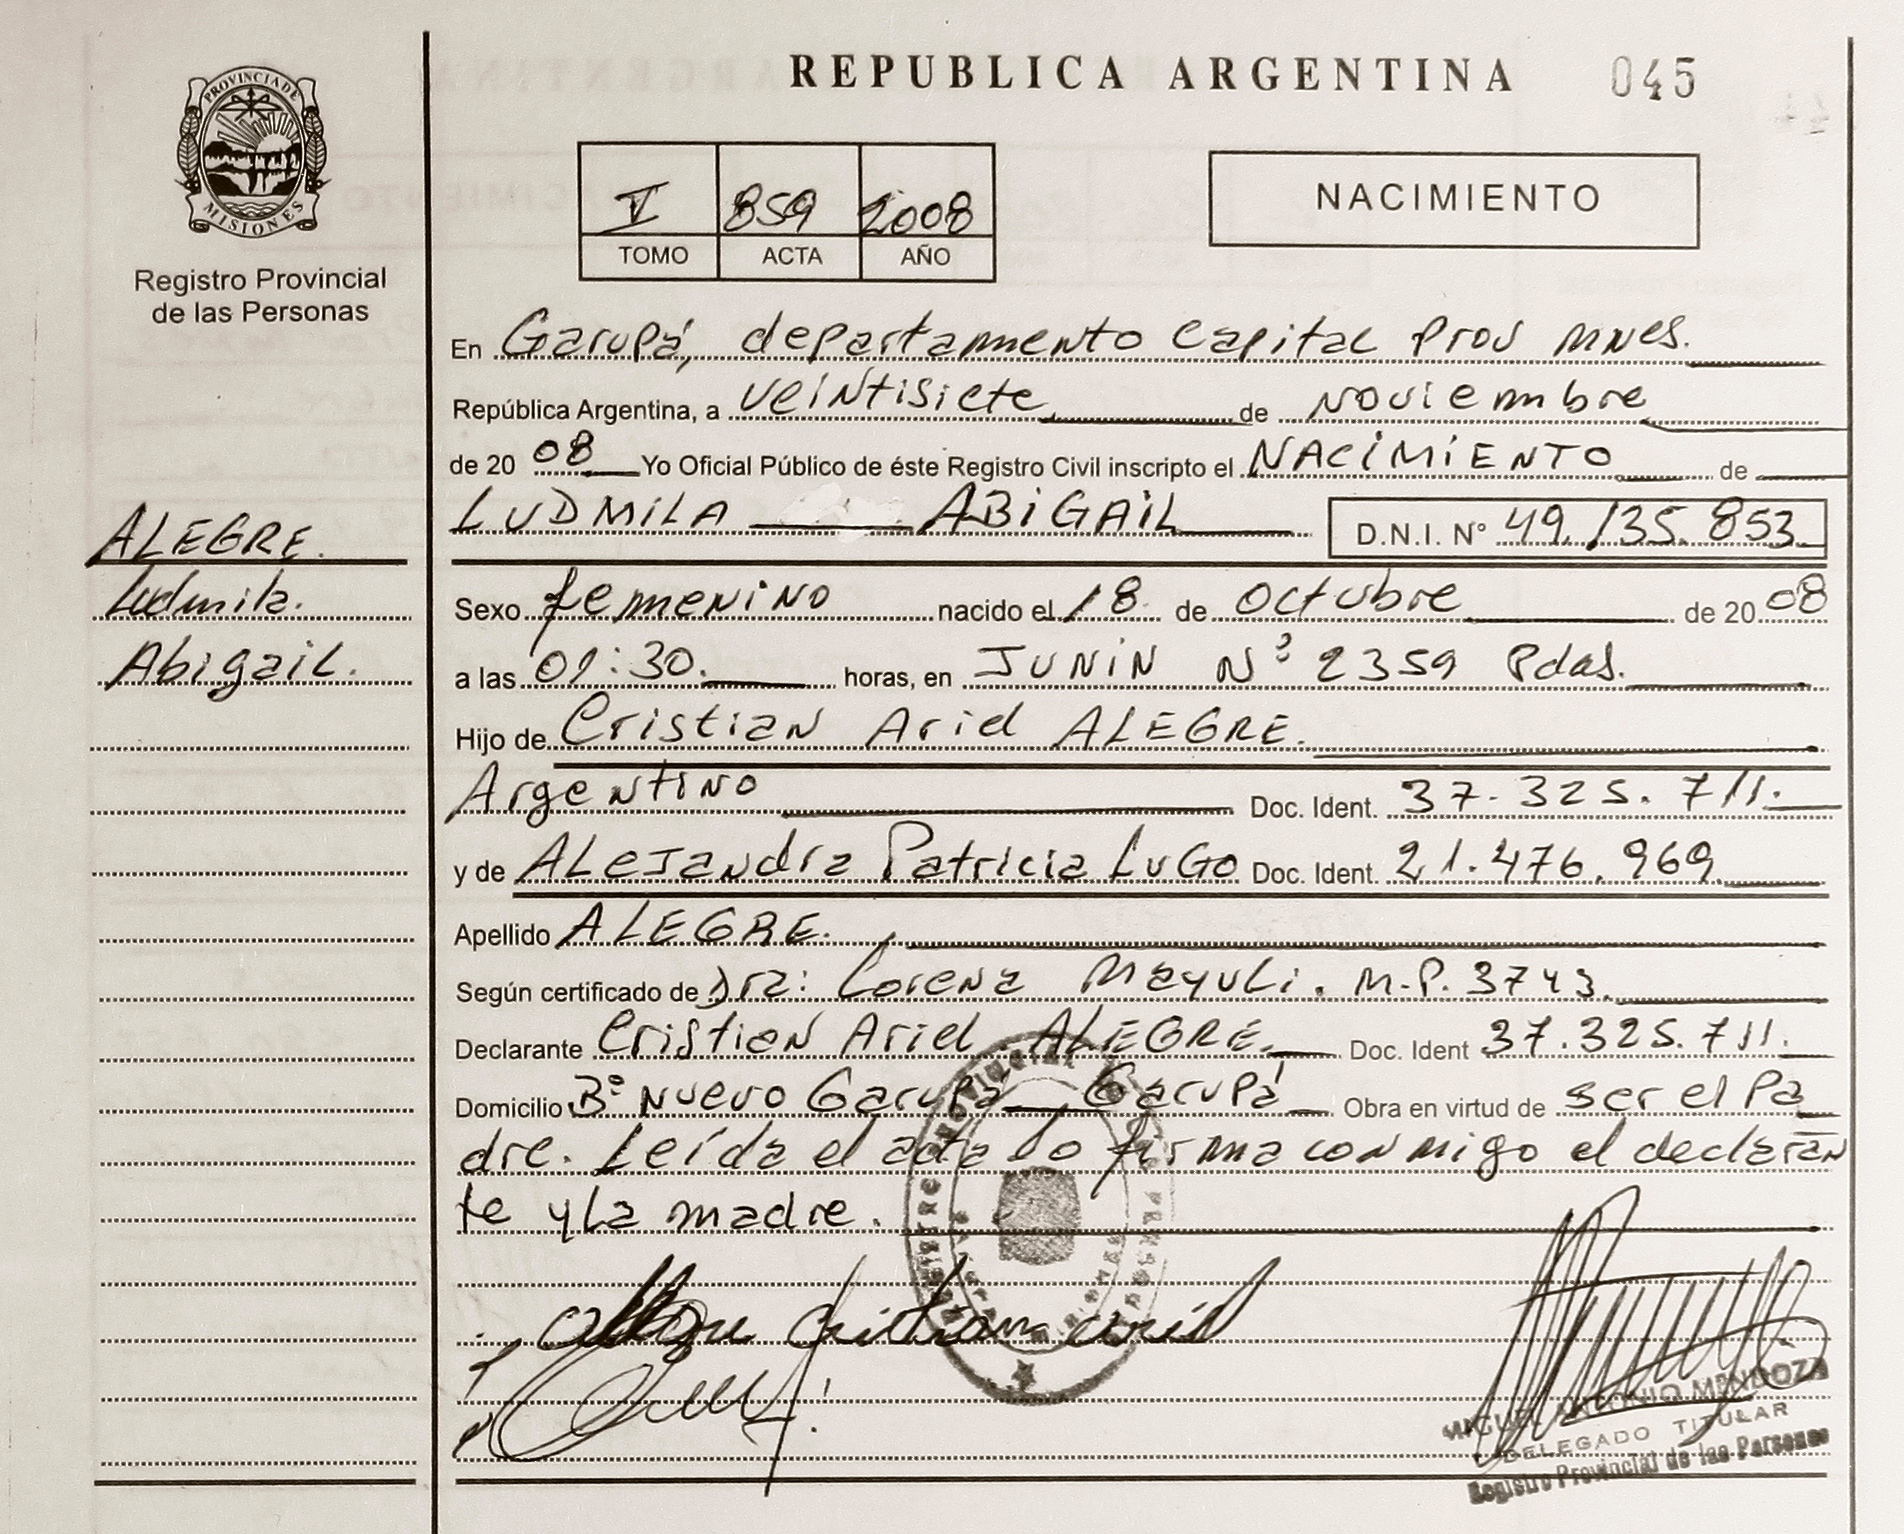 REPUBLICA ARGENTINA 045
PROVINCIA DE
MISIONES
Registro Provincial
de las Personas
V 859 2008
TOMO ACTA AÑO
NACIMIENTO
En Garupá, departamento Capital Prov Mnes.
República Argentina, a veintisiete de noviembre
de 2008 Yo Oficial Público de éste Registro Civil inscripto el NACIMIENTO de
LUDMILA ABIGAIL D.N.I. Nº 49.135.853
ALEGRE.
Ludmila.
Abigail.
Sexo femenino nacido el 18 de octubre de 2008
a las 01:30. horas, en JUNIN Nº 2359 Pdas.
Hijo de Cristian Ariel ALEGRE.
Argentino Doc. Ident. 37.325.711.
y de ALEJandra Patricia LUGO Doc. Ident. 21.476.969
Apellido ALEGRE.
Según certificado de Dra: Lorena Mayuli. M.P. 3743.
Declarante Cristian Ariel ALEGRE. Doc. Ident 37.325.711.
Domicilio Bº Nuevo Garupá Garupá Obra en virtud de ser el Pa
dre. Leída el acta lo firma conmigo el declaran
te y la madre.
Cristian Ariel
MIGUEL ANTONIO MENDOZA
DELEGADO TITULAR
Registro Provincial de las Personas